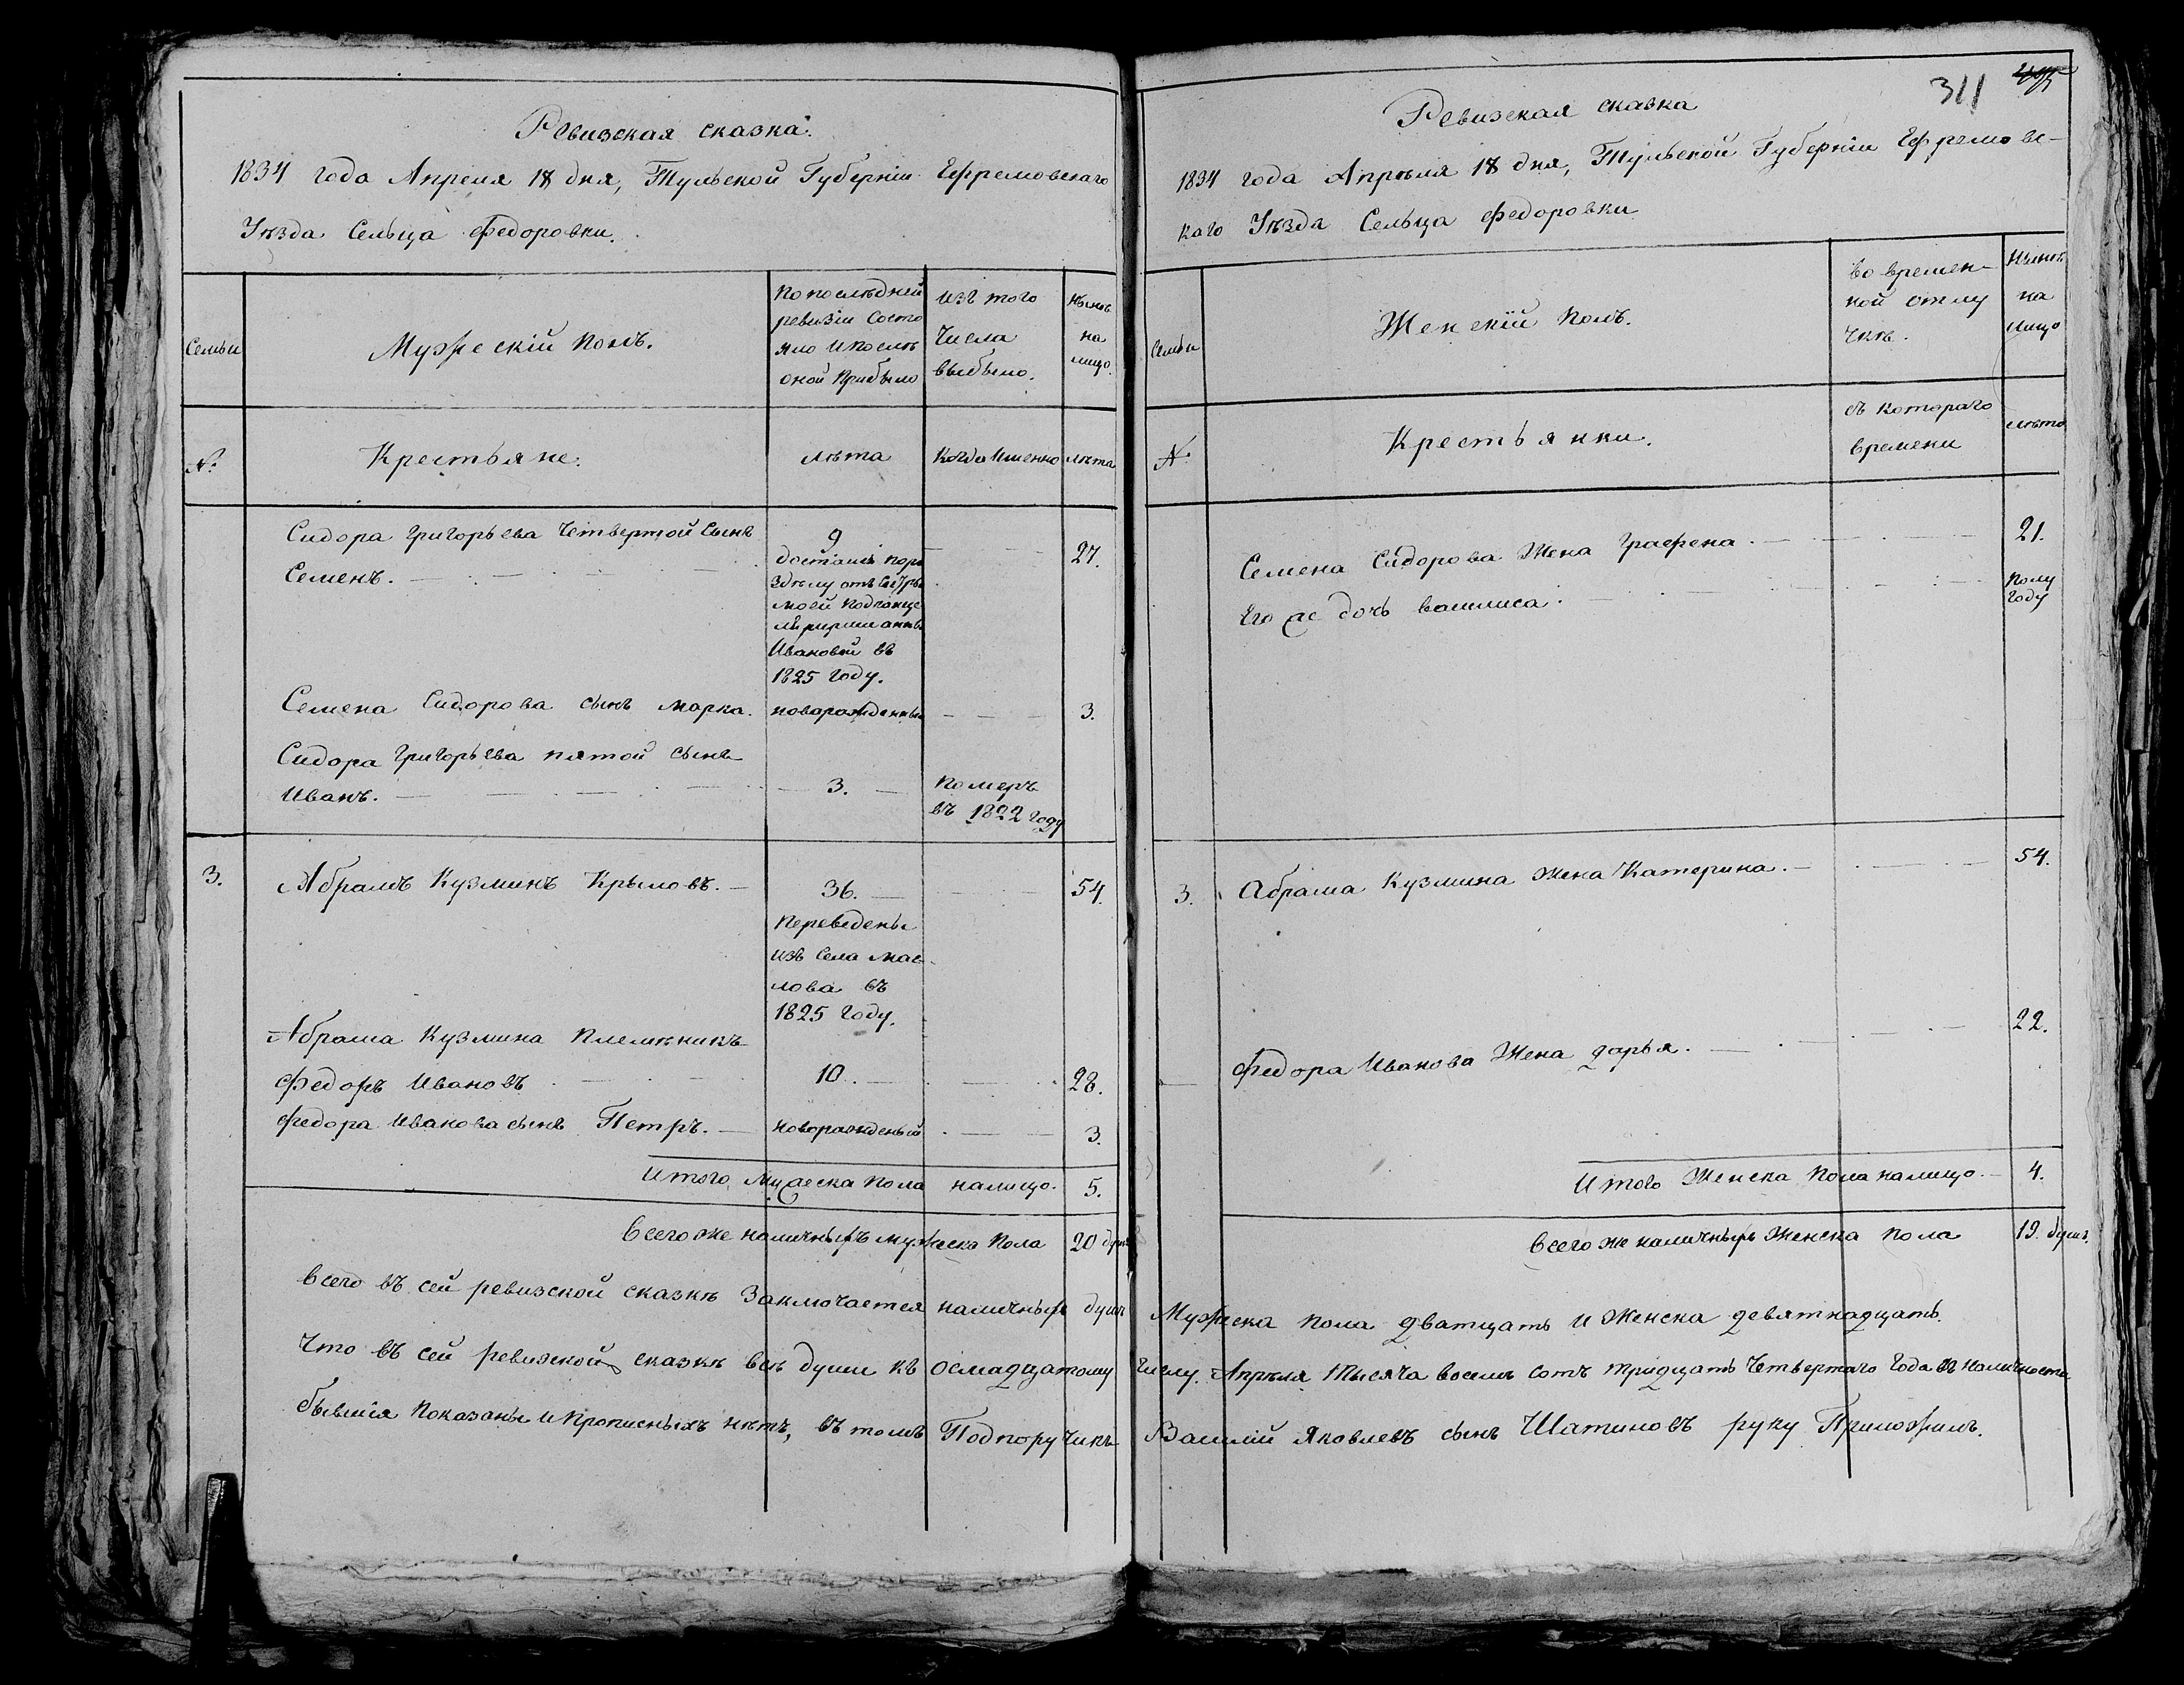 Ревизская сказка.
1834 года Апреля 18 дня, Тульской Губерніи Ефремовскаго
Уѣзда Сельца Федоровки.
Семьи
Мужескій полъ.
По послѣдней
ревизіи Состо
яло и послѣ
оной Прибыло
изъ того
Числа
выбыло.
нынѣ
на
лицо.
№
Крестьяне.
лѣта
Когда Именно
лѣта
Сидора Григорьева Четвертой Сынъ
Семенъ.
9
27.
моей
Ивановой въ
1825 году.
Семена Сидорова сынъ Марка.
новорожденный
3.
Сидора Григорьева пятой сынъ
Иванъ.
3.
Померъ
въ 1822 году
3.
Абрамъ Кузминъ Крыловъ.
36.
54.
Переведены
изъ Села Мас-
лова въ
1825 году.
Абрама Кузмина Племѣникъ
Федоръ Ивановъ
10.
28.
Федора Иванова сынъ Петръ.
новорожденый
3.
Итого Мужеска Пола налицо.
5.
Всего же наличныхъ мужеска Пола
20 душ
Всего въ сей ревизской сказкѣ Заключается наличныхъ душъ
Что въ сей ревизской сказкѣ всѣ души къ осмадцатому
бывшія Показаны и Прописныхъ нѣтъ, въ томъ Подпоручикъ
311
Ревизская сказка
1834 года Апрѣля 18 дня, Тульской Губерніи Ефремовс-
каго Уѣзда Сельца Федоровки
Семьи
Женскій полъ.
Во времен-
ной отлу
чкѣ.
Нынѣ
на
лицо
№
Крестьянки.
съ котораго
времени
лѣта
Семена Сидорова Жена Графена.
21.
Его же дочь василиса.
полу
году
3.
Абрама Кузмина жена Катерина.
54.
Федора Иванова Жена дарья.
22.
Итого Женска Пола налицо.
4.
Всего же наличныхъ Женска Пола
19. душъ.
Мужеска пола дватцать и Женска девятнадцать.
числу Апрѣля тысяча восемь сотъ тридцать Четвертаго Года въ наличности
Василій Яковлевъ сынъ Шатиловъ руку Приложилъ.